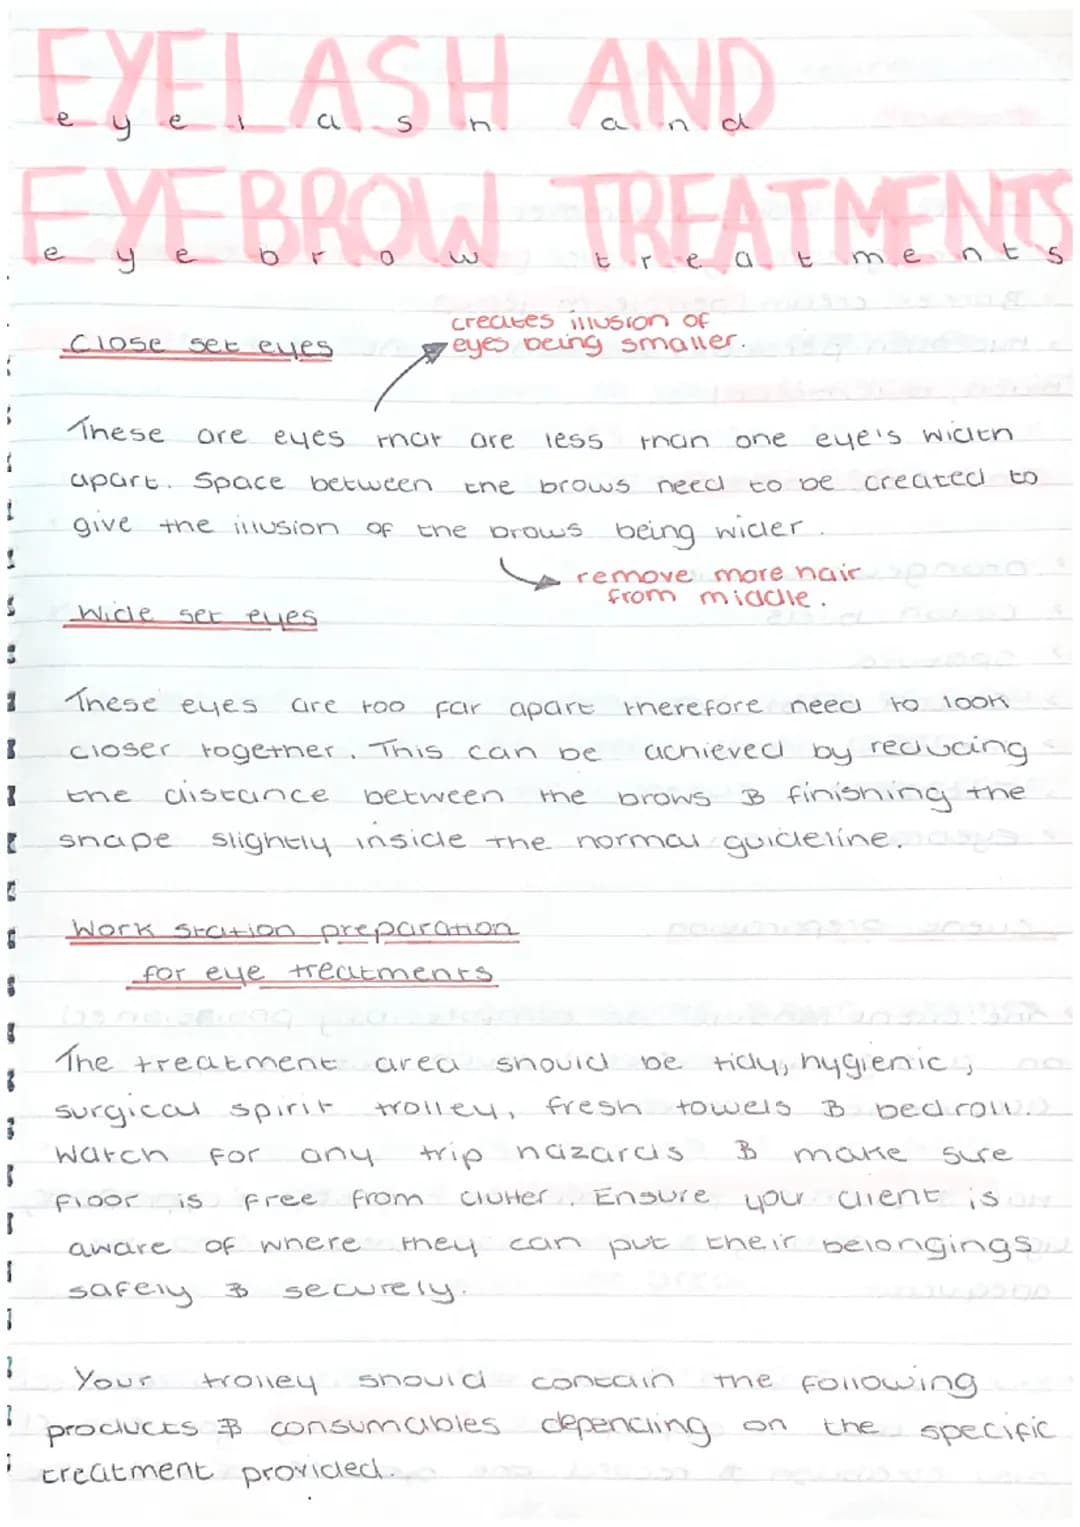 EYELASH AND
eyelash and
EYEBROW TREATMENTS
eyebrow treatments
creates illusion of
eyes being smaller.
Close set eyes
These are eyes that are less than one eye's width
apart. Space between the brows need to be created to
give the illusion of the brows being wider.
remove more hair
from middle.
Wide set eyes
These eyes are too far apart therefore need to look
closer together. This can be achieved by reducing
the distance between the brows & finishing the
shape slightly inside the normal guideline.
Work station preparation
for eye treatments
The treatment area should be tidy, hygienic,
surgical spirit trolley, fresh towels & bedroll.
Watch for any trip hazards & make sure
floor is free from clutter. Ensure your client is
aware of where they can put their belongings
safely & securely.
Your trolley should contain the following
products & consumables depending on the specific
treatment provided.